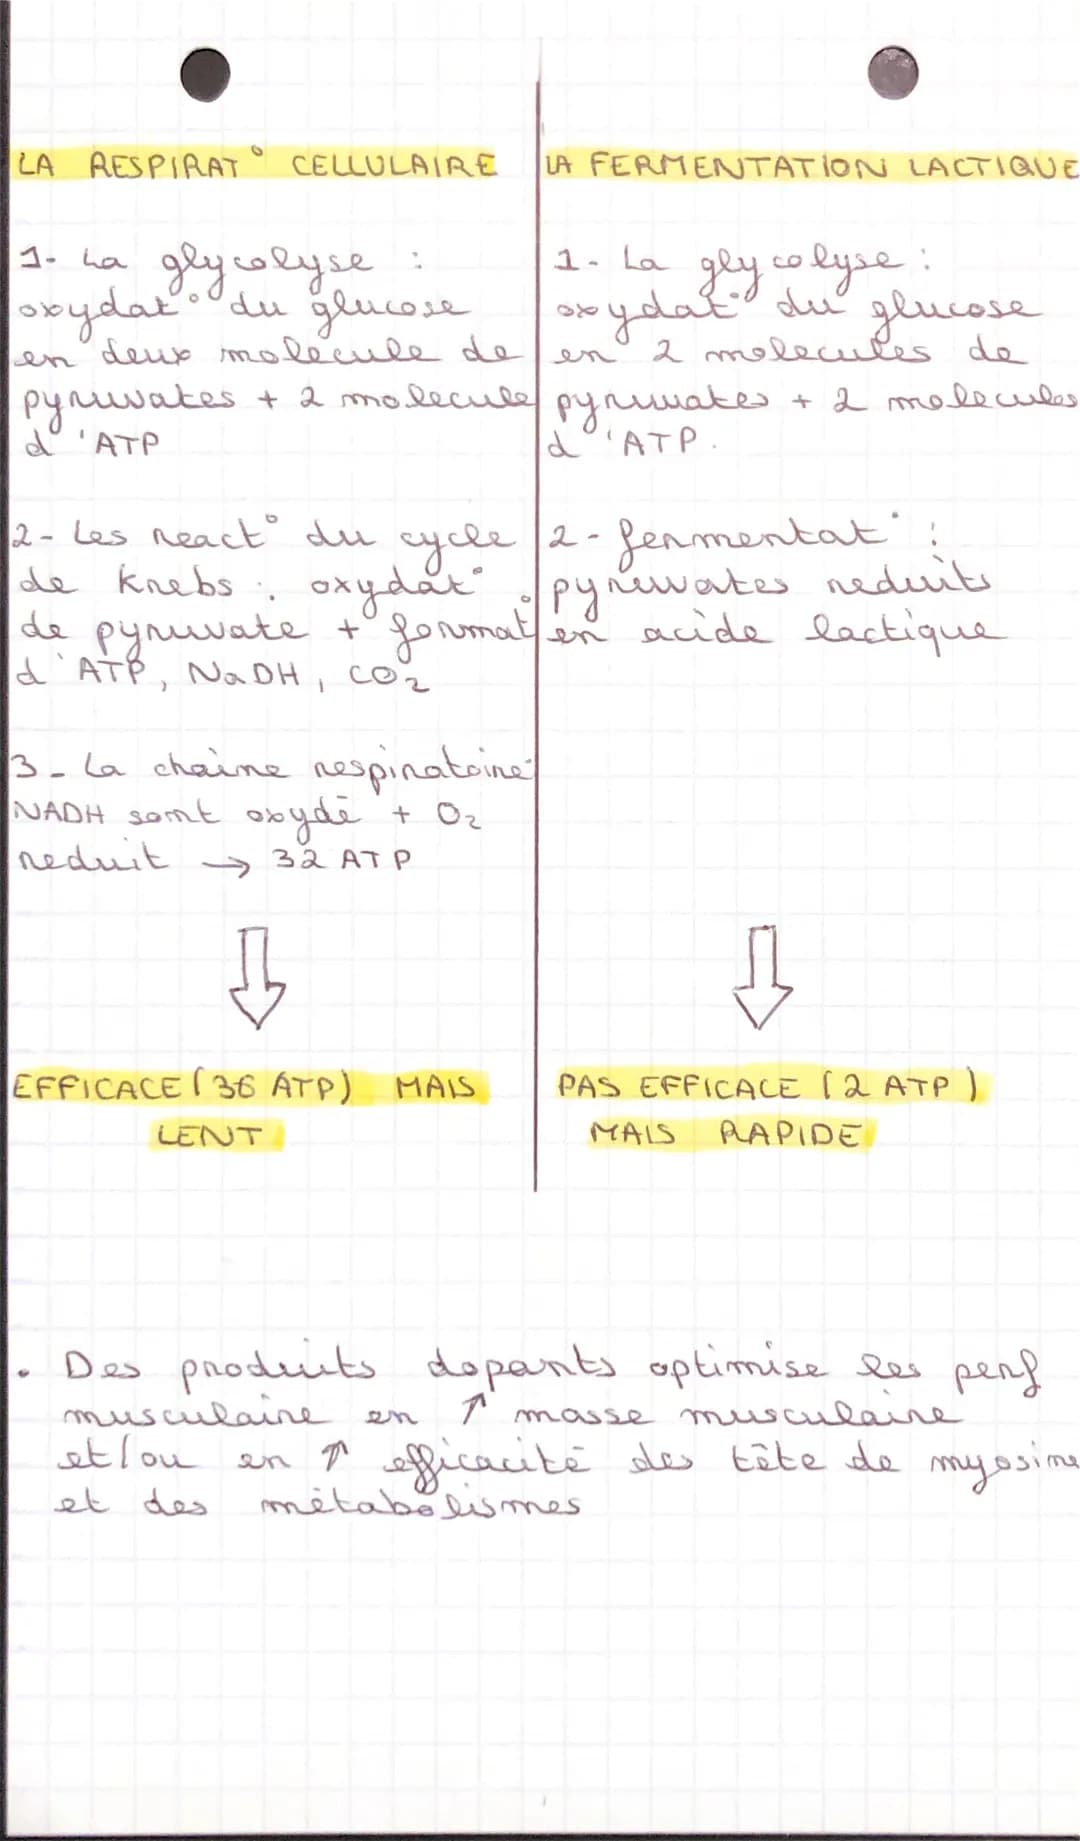 LA RESPIRAT° CELLULAIRE
1- La glycolyse :
oxydat° du glucose
en deux molecule de
pyruvates + 2 molecule
d'ATP
2- Les react° du cycle
de Krebs : oxydat°
de pyruvate + format°
d'ATP, NaDH, CO2
3- La chaine respiratoire
NADH sont oxydé + O2
reduit → 32 ATP
⇩
EFFICACE (36 ATP) MAIS
LENT
LA FERMENTATION LACTIQUE
1- La glycolyse :
oxydat° du glucose
en 2 molecules de
pyruvates + 2 molecules
d'ATP.
2- fermentat° :
pyruvates reduits
en acide lactique
⇩
PAS EFFICACE (2 ATP)
MAIS RAPIDE
• Des produits dopants optimise les perf
musculaire en ↑ masse musculaire
et/ou en ↑ efficacité des tête de myosine
et des métabolismes